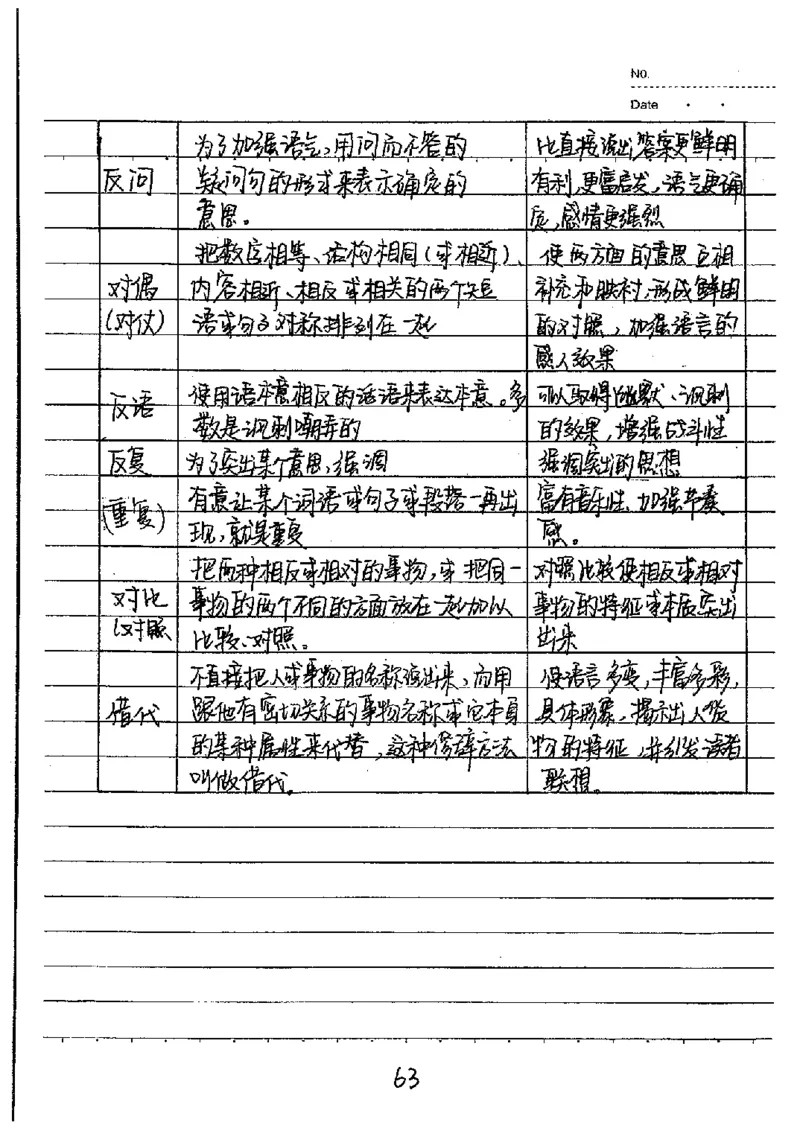 No.
Date
为了加强语气,用问而不答的
反问
疑问句的形式来表示确定的
意思。
比直接说出答案更鲜明
有利,更富启发,语气更确
定,感情更强烈
对偶
(对仗)
把数字相等、结构相同(或相近)、
内容相近、相反或相关的两个短
语或句子对称排列在一起
使两方面的意思互相
补充和映衬,形成鲜明
的对照,加强语言的
感人效果
反语
使用语本意相反的话语来表达本意。多
数是讽刺嘲弄的
可以取得幽默、讽刺
的效果,增强战斗性
反复
(重复)
为了突出某个意思,强调
有意让某个词语或句子或段落一再出
现,就是重复
强调突出的思想
富有音乐性、加强节奏
感。
对比
(对照
把两种相反或相对的事物,或把同一
事物的两个不同的方面放在一起加以
比较、对照。
对照比较使相反或相对
事物的特征或本质突出
出来
借代
不直接把人或事物的名称说出来,而用
跟他有密切关系的事物名称或它本身
的某种属性来代替,这种修辞方法
叫做借代。
使语言多变,丰富多彩,
具体形象,揭示出人或
物的特征,并引发读者
联想。
63